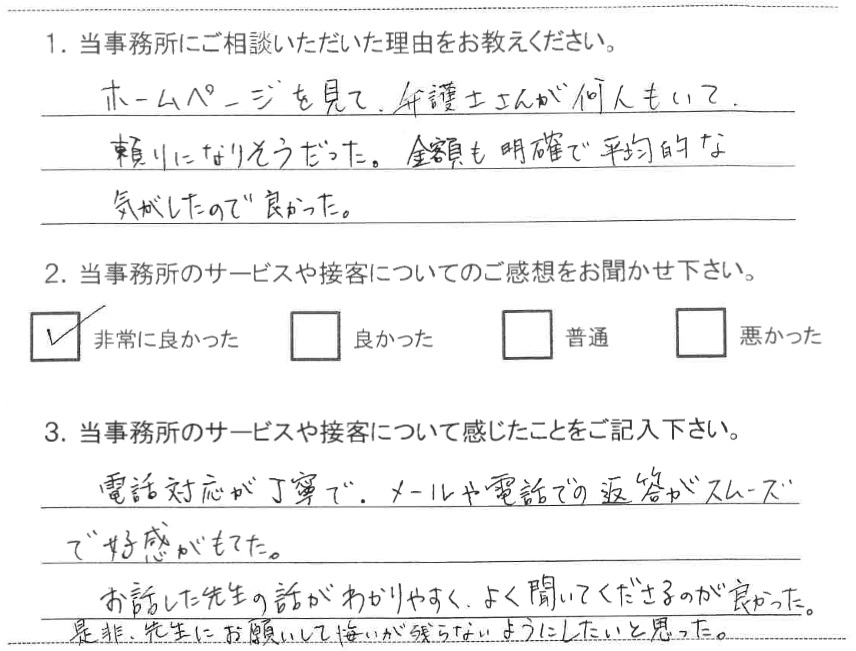 1. 当事務所にご相談いただいた理由をお教えください。
ホームページを見て、弁護士さんが何人もいて、
頼りになりそうだった。金額も明確で平均的な
気がしたので良かった。
2. 当事務所のサービスや接客についてのご感想をお聞かせ下さい。
非常に良かった 良かった 普通 悪かった
3. 当事務所のサービスや接客について感じたことをご記入下さい。
電話対応が丁寧で、メールや電話での返答がスムーズ
で好感がもてた。
お話した先生の話がわかりやすく、よく聞いてくださるのが良かった。
是非、先生にお願いして悔いが残らないようにしたいと思った。